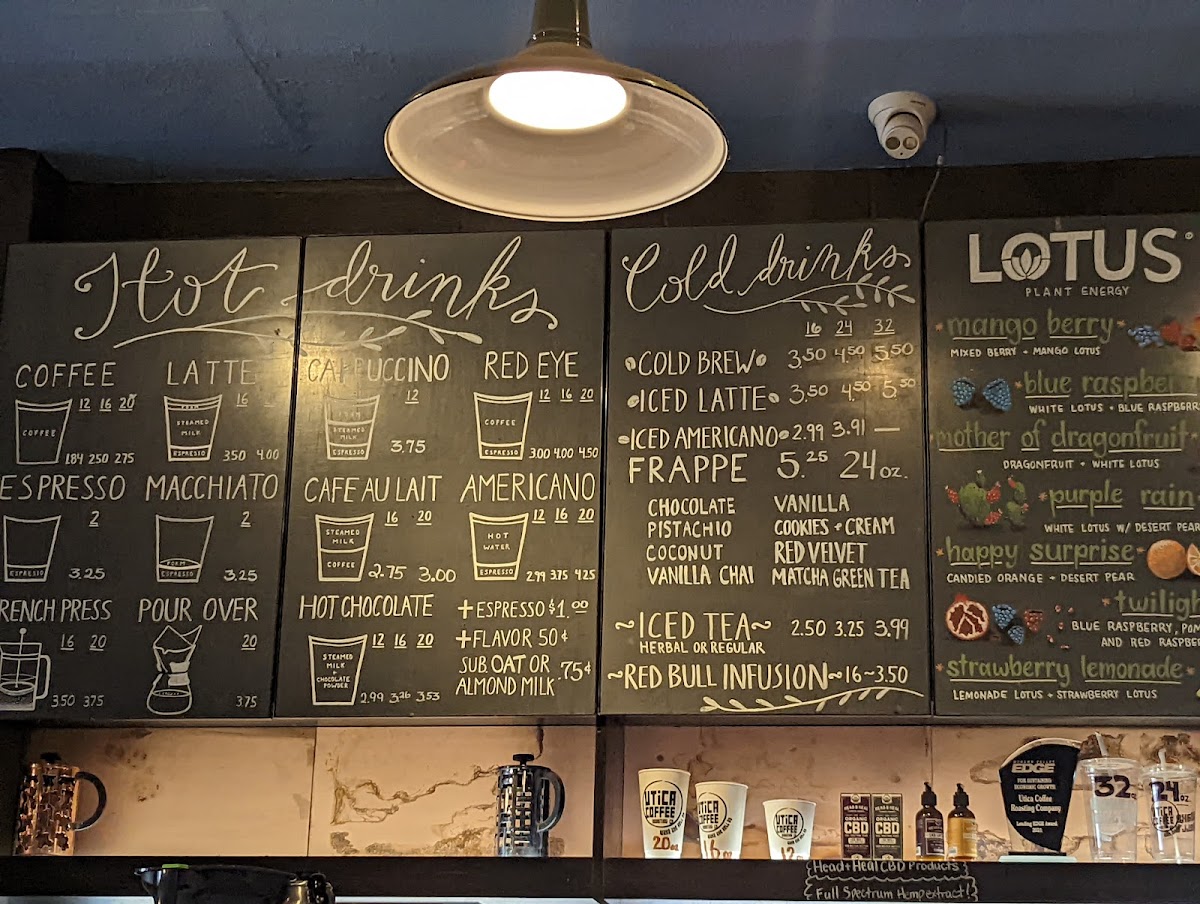 Hot drinks
COFFEE
12 16 20
COFFEE
1.84 2.50 2.75
LATTE
16
FOAM
STEAMED
MILK
ESPRESSO
3.50 4.00
ESPRESSO
2
ESPRESSO
3.25
MACCHIATO
2
FOAM
ESPRESSO
3.25
RENCH PRESS
16 20
3.50 3.75
POUR OVER
20
3.75
CAPPUCCINO
12
FOAM
STEAMED
MILK
ESPRESSO
3.75
RED EYE
12 16 20
COFFEE
ESPRESSO
3.00 4.00 4.50
CAFE AU LAIT
16 20
STEAMED
MILK
COFFEE
2.75 3.00
AMERICANO
12 16 20
HOT
WATER
ESPRESSO
2.99 3.75 4.25
HOT CHOCOLATE
12 16 20
STEAMED
MILK
+
CHOCOLATE
POWDER
2.99 3.26 3.53
+ESPRESSO $1.00
+FLAVOR 50¢
SUB OAT OR
ALMOND MILK .75¢
Cold drinks
16 24 32
COLD BREW 3.50 4.50 5.50
ICED LATTE 3.50 4.50 5.50
ICED AMERICANO 2.99 3.91 —
FRAPPE 5.25 24oz.
CHOCOLATE VANILLA
PISTACHIO COOKIES + CREAM
COCONUT RED VELVET
VANILLA CHAI MATCHA GREEN TEA
~ICED TEA~ 2.50 3.25 3.99
HERBAL OR REGULAR
~RED BULL INFUSION~16~3.50
LOTUS
PLANT ENERGY
*mango berry*
MIXED BERRY + MANGO LOTUS
*blue raspber
WHITE LOTUS + BLUE RASPBERR
mother of dragonfruit
DRAGONFRUIT + WHITE LOTUS
*purple rain
WHITE LOTUS W/ DESERT PEAR
*happy surprise*
CANDIED ORANGE + DESERT PEAR
*twiligh
BLUE RASPBERRY, POM
AND RED RASPBE
*strawberry lemonade*
LEMONADE LOTUS + STRAWBERRY LOTUS
UTICA
COFFEE
ROASTING
20oz
UTICA
COFFEE
16oz
UTICA
COFFEE
12
HEAD & HEAL
ORGANIC
CBD
HEAD & HEAL
ORGANIC
CBD
EDGE
FOR SUSTAINING
ECONOMIC GROWTH
Utica Coffee
Roasting Company
32
24oz
Head+Heal CBD Products
Full Spectrum Hemp extract!